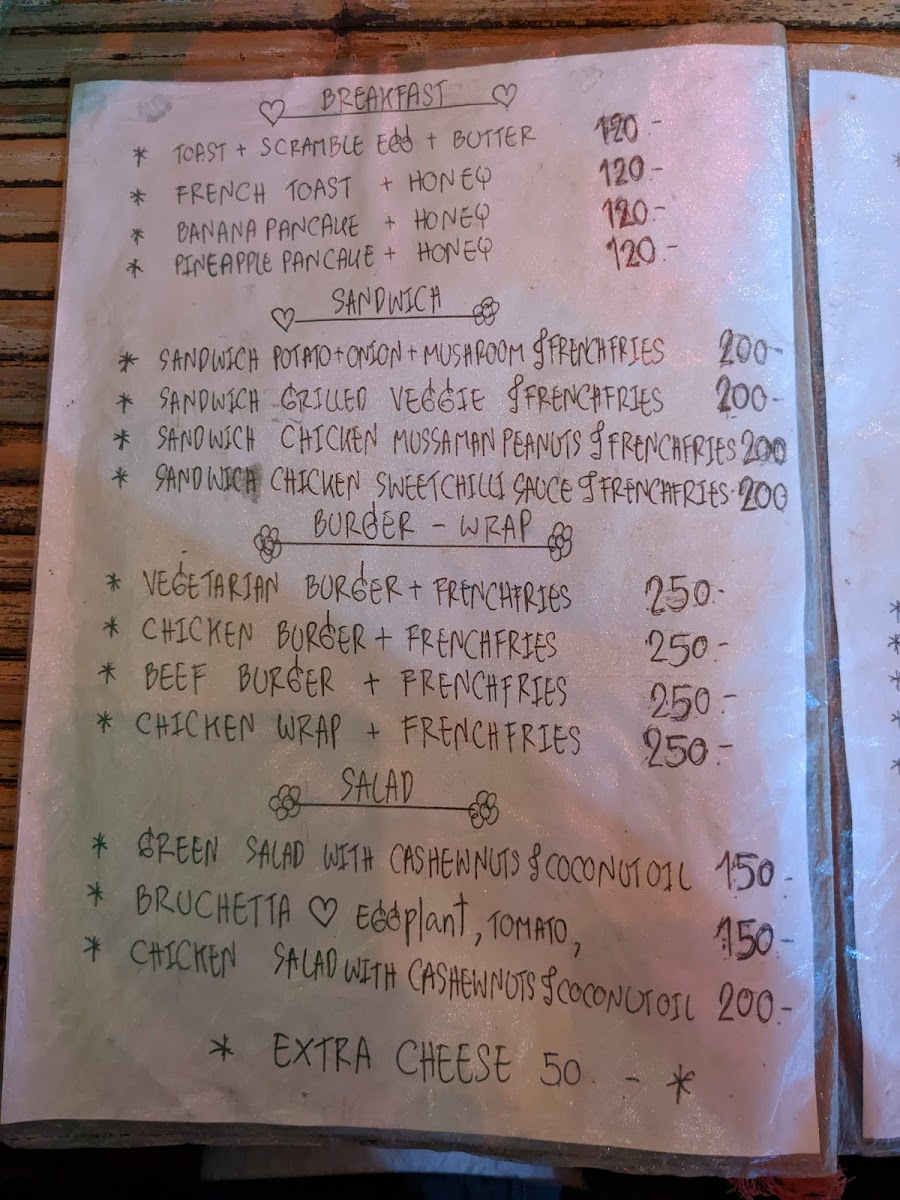 ♡ BREAKFAST ♡
* TOAST + SCRAMBLE EGG + BUTTER 120.-
* FRENCH TOAST + HONEY 120.-
* BANANA PANCAKE + HONEY 120.-
* PINEAPPLE PANCAKE + HONEY 120.-
♡ SANDWICH
* SANDWICH POTATO+ONION+MUSHROOM & FRENCHFRIES 200-
* SANDWICH GRILLED VEGGIE & FRENCHFRIES 200-
* SANDWICH CHICKEN MUSSAMAN PEANUTS & FRENCHFRIES 200
* SANDWICH CHICKEN SWEETCHILLI SAUCE & FRENCHFRIES 200
BURGER - WRAP
* VEGETARIAN BURGER + FRENCHFRIES 250.-
* CHICKEN BURGER + FRENCHFRIES 250.-
* BEEF BURGER + FRENCHFRIES 250.-
* CHICKEN WRAP + FRENCHFRIES 250.-
SALAD
* GREEN SALAD WITH CASHEWNUTS & COCONUT OIL 150.-
* BRUCHETTA ♡ EGGplant, TOMATO, 150.-
* CHICKEN SALAD WITH CASHEWNUTS & COCONUT OIL 200.-
* EXTRA CHEESE 50.- *